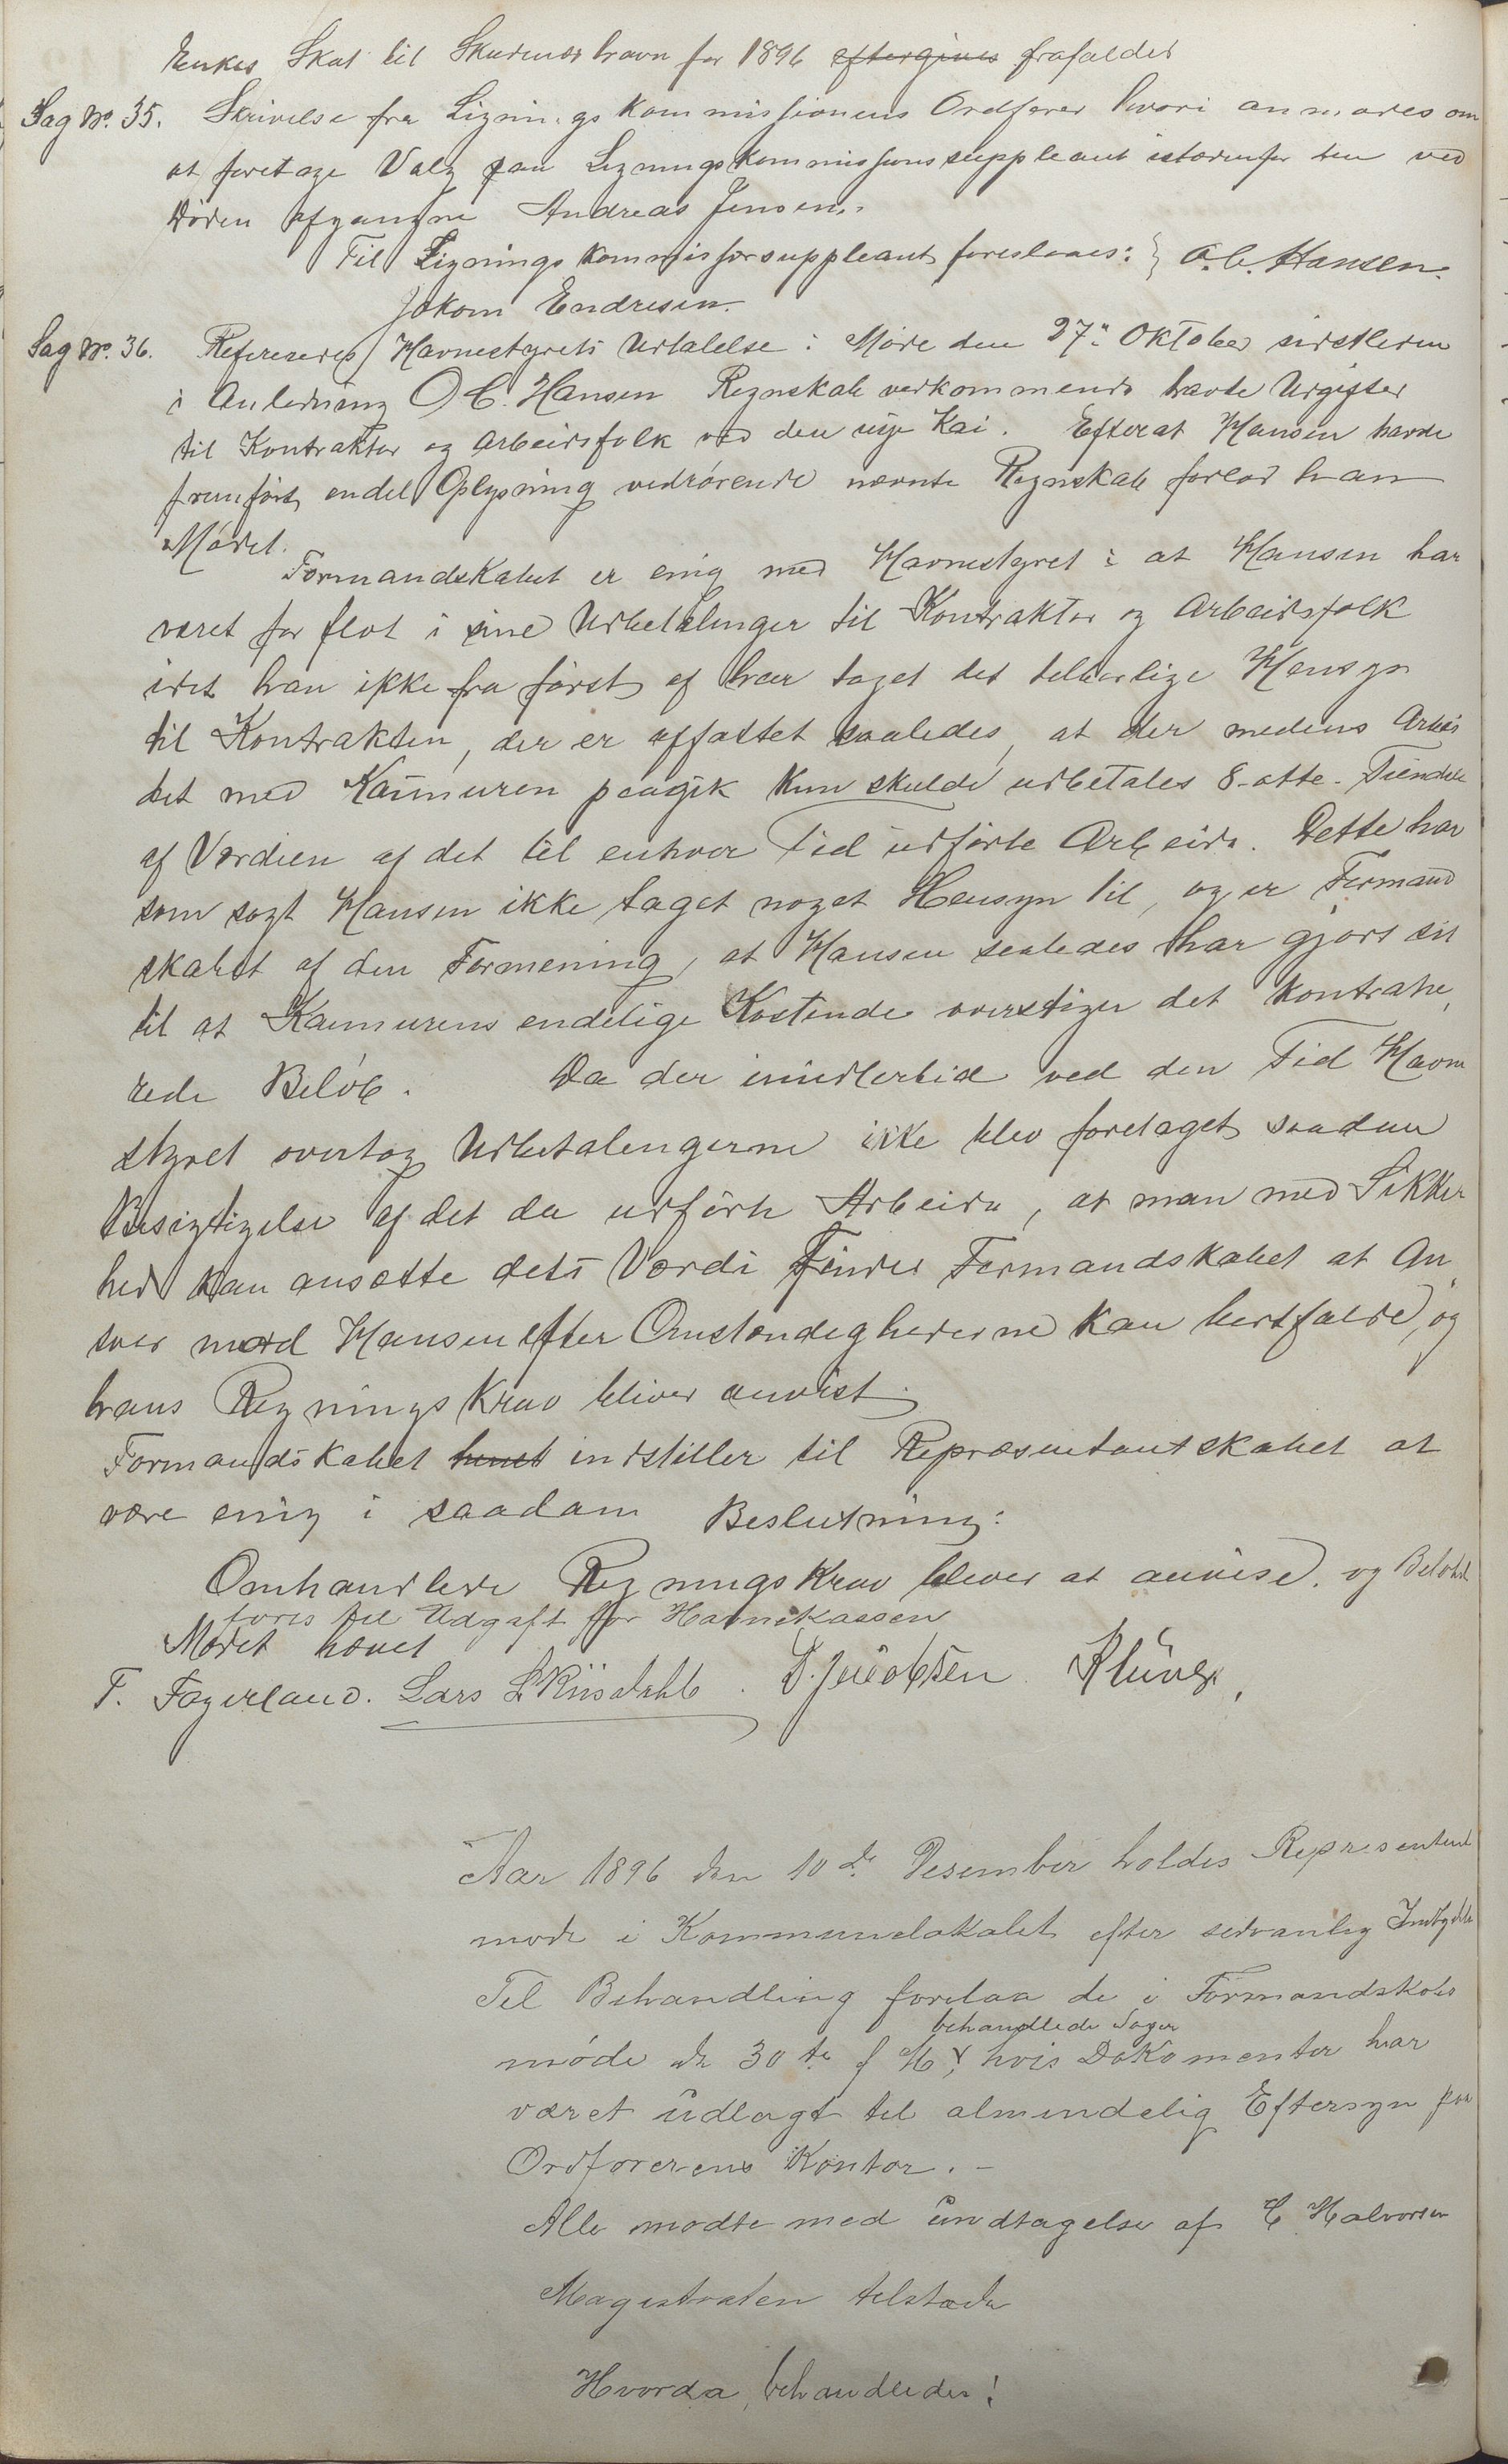 Enkes Skat til Skudenæshavn for 1896 eftergives frafaldes
Sag No. 35. Skrivelse fra Ligningskommissionens Ordfører hvori anmodes om
at foretage Valg paa Ligningskommissionssuppleant istedenfor den ved
Døden afgangne Andreas Jensen.
Til Ligningskommissorsuppleant foreslaaes: O. C. Hansen.
Jokom Endresen.
Sag No. 36. Refereredes Havnestyrets Udtalelse i Møde den 27de Oktober sidstleden
i Anledning O C. Hansen Regnskab vedkommende havte Udgifter
til Kontraktør og Arbeidsfolk ved den nye Kai. Efterat Hansen havde
fremført endel Oplysning vedrørende nævnte Regnskab forlod han
Mødet.
Formandskabet er enig med Havnestyret i at Hansen har
været for flot i sine Udbetalinger til Kontraktør og Arbeidsfolk
idet han ikke fra først af har taget det tilbørlige Hensyn
til Kontrakten, der er affattet saaledes, at der medens Arbei
det med Kaimuren paagik kun skulde udbetales 8-otte-Tiendele
af Værdien af det til enhver Tid udførte Arbeide. Dette har
som sagt Hansen ikke taget noget Hensyn til, og er Formand
skabet af den Formening, at Hansen saaledes har gjort sit
til at Kaimurens endelige Kostende overstiger det kontrahe
rede Beløb. Da der imidlertid ved den Tid Havne
styret overtog Udbetalingerne ikke blev foretaget saadan
Besigtigelse af det da udførte Arbeide, at man med Sikker
hed kan ansætte dets Værdi finder Formandskabet at An
svar mod Hansen efter Omstændighederne kan bortfalde, og
hans Regningskrav bliver anvist.
Formandskabet indstiller til Repræsentantskabet at
være enig i saadan Beslutning:
Omhandlede Regningskrav bliver at anvise. og Beløbet
føres til Udgift for Havnekassen
Mødet hævet
T. Fagerland. Lars L Riisdahl. D. Jacobsen Kluge.
Aar 1896 den 10de Desember holdes Representent
møde i Kommunelokalet efter sedvanlig Indbydelse
Til Behandling forelaa de i Formandskabs
behandlede Sager
møde de 30te f M, hvis Dokomenter har
været udlagt til almindelig Eftersyn paa
Ordførerens Kontor. –
Alle mødte med undtagelse af E Halvorsen
Magistraten tilstede
Hvorda behandledes!